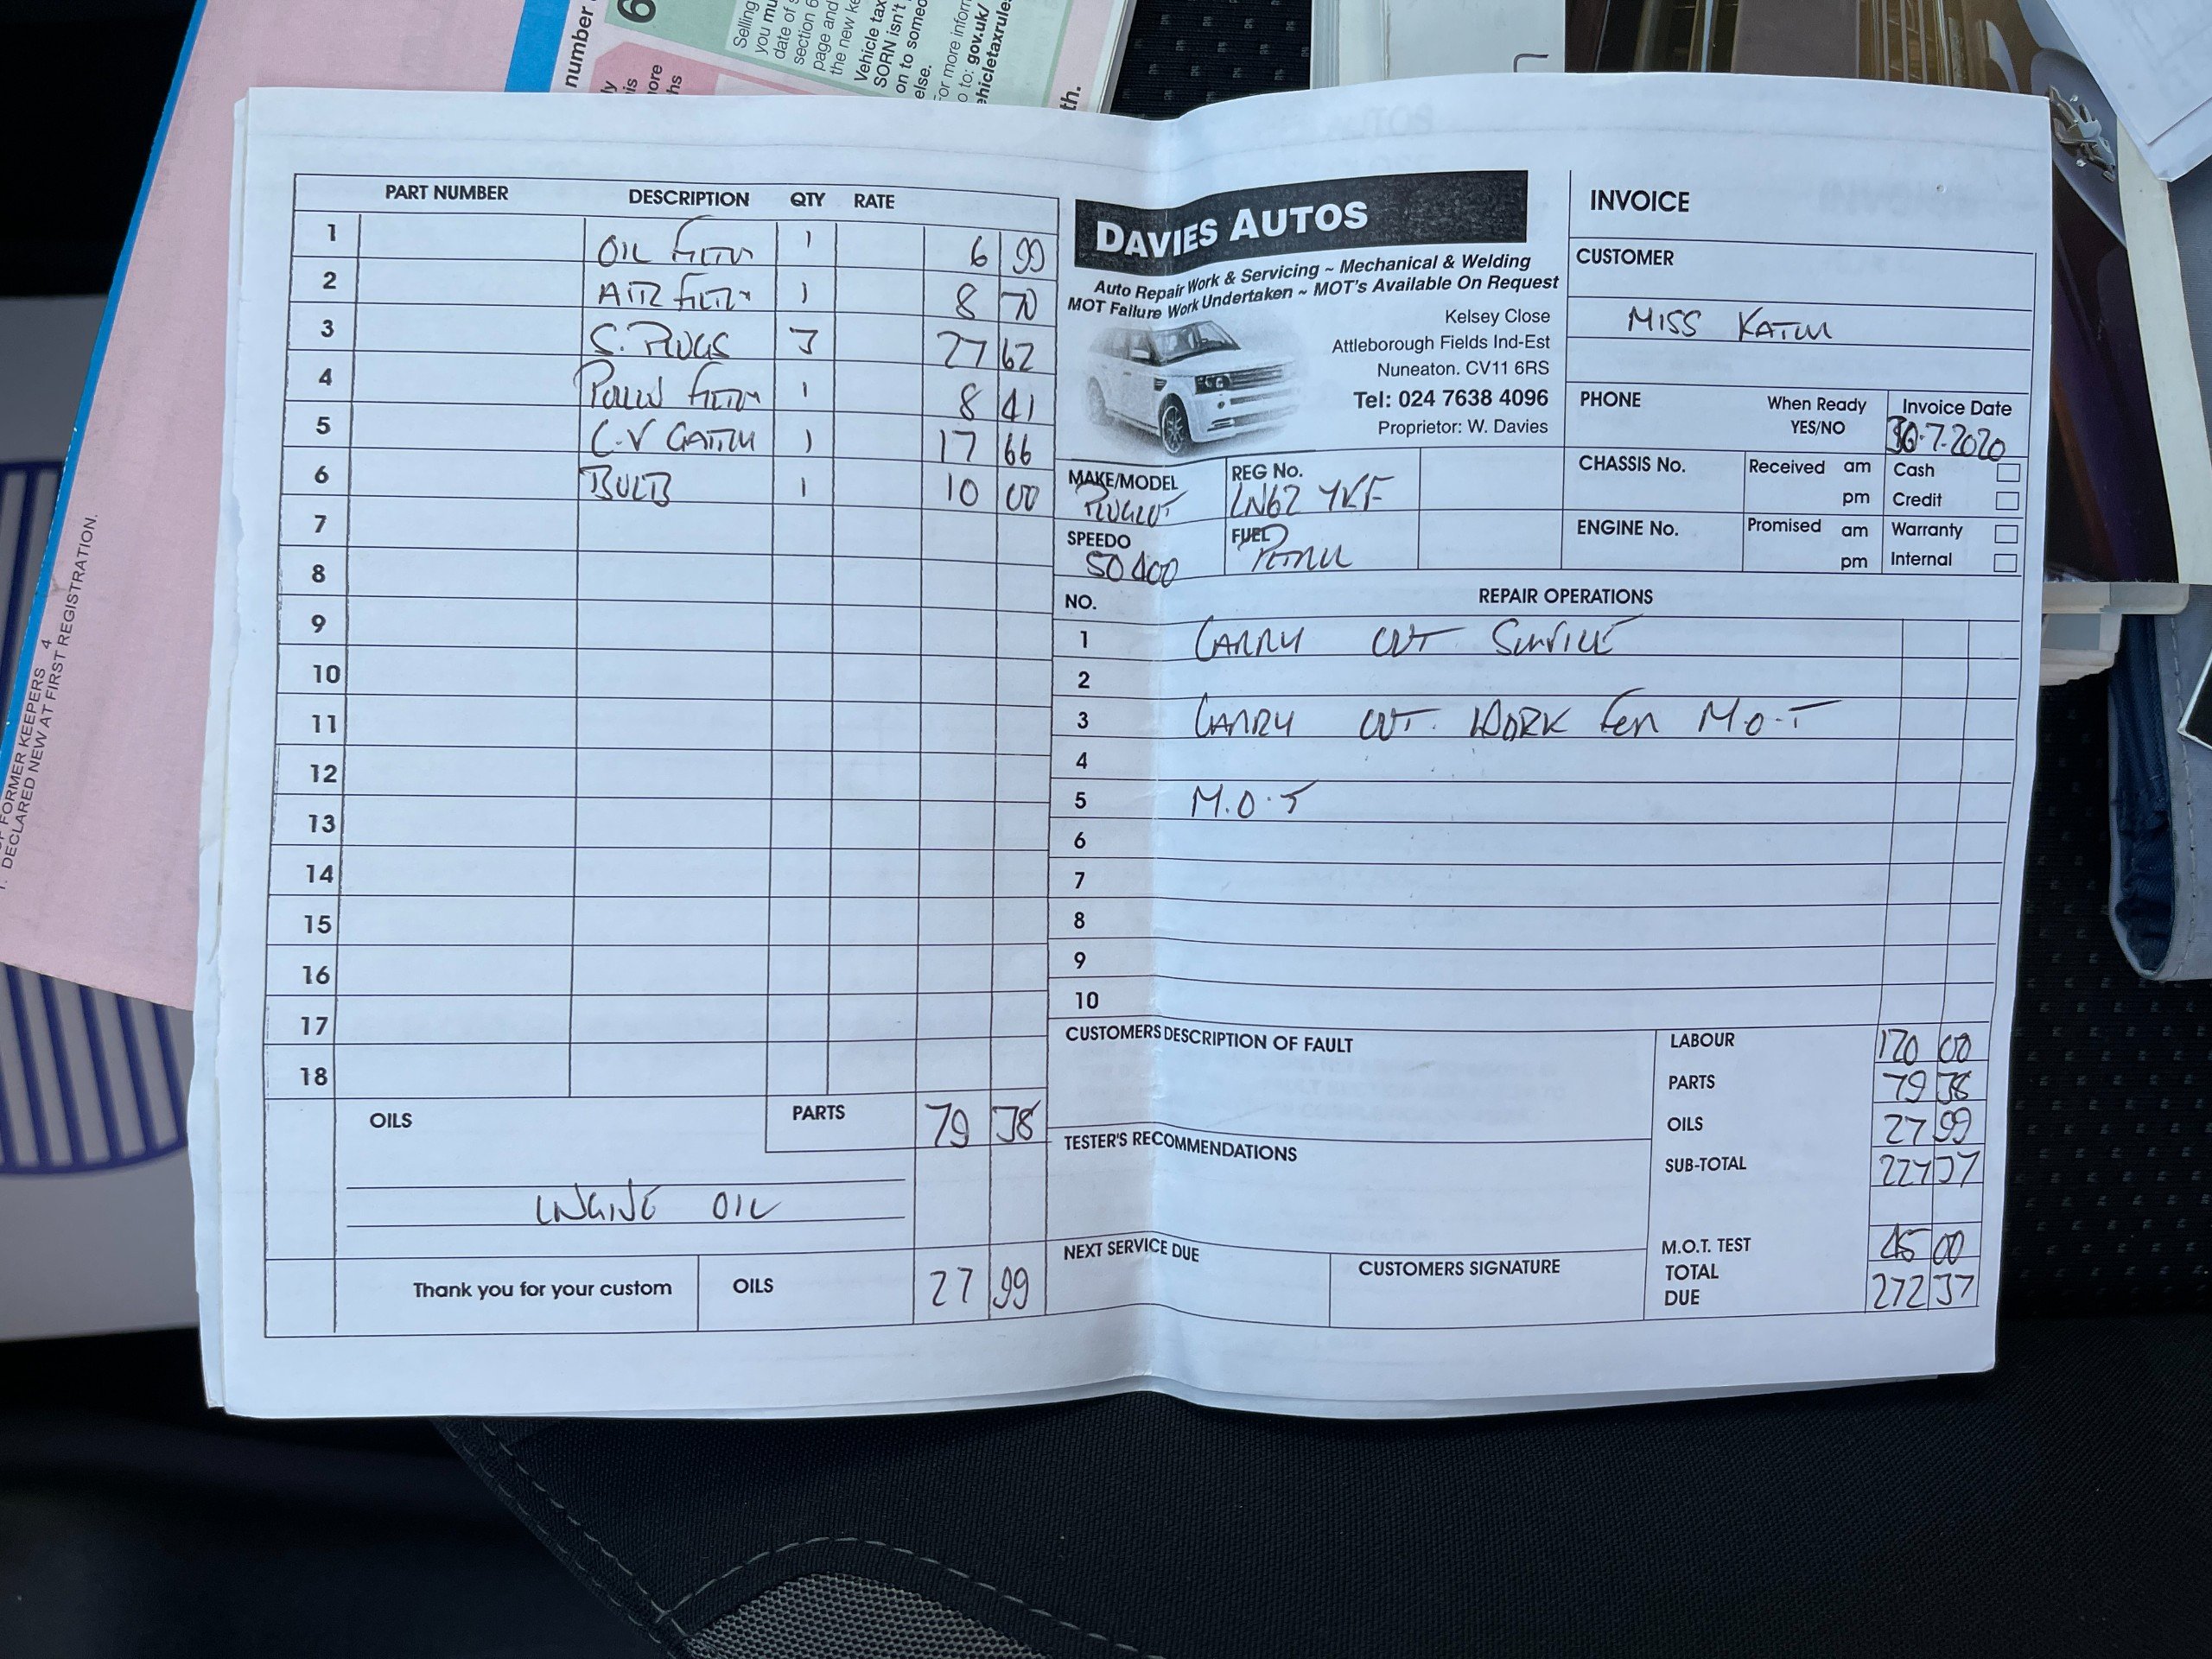 number
6
Selling
you mu
date of s
section 6
page and
the new ke
Vehicle tax
SORN isn't
on to someo
else.
or more inforn
o to: gov.uk/
ehicletaxrules
th.
ly
is
ore
hs
OF FORMER KEEPERS 4
1. DECLARED NEW AT FIRST REGISTRATION.
PART NUMBER DESCRIPTION QTY RATE
1 OIL FILTER 1 6 99
2 AIR FILTER 1 8 70
3 S. PLUGS 3 27 62
4 POLLEN FILTER 1 8 41
5 C.V GAITER 1 17 66
6 BULB 1 10 00
7
8
9
10
11
12
13
14
15
16
17
18
OILS PARTS 79 38
ENGINE OIL
Thank you for your custom OILS 27 99
DAVIES AUTOS
Auto Repair Work & Servicing ~ Mechanical & Welding
MOT Failure Work Undertaken ~ MOT's Available On Request
Kelsey Close
Attleborough Fields Ind-Est
Nuneaton. CV11 6RS
Tel: 024 7638 4096
Proprietor: W. Davies
INVOICE
CUSTOMER
MISS
PHONE When Ready YES/NO Invoice Date
30.7.2020
MAKE/MODEL PEUGEOT REG No. LN62 YKF
CHASSIS No. Received am pm Cash
Credit
SPEEDO 50400 FUEL PETROL
ENGINE No. Promised am pm Warranty
Internal
NO. REPAIR OPERATIONS
1 CARRY OUT SERVICE
2
3 CARRY OUT WORK FOR M.O.T
4
5 M.O.T
6
7
8
9
10
CUSTOMERS DESCRIPTION OF FAULT
TESTER'S RECOMMENDATIONS
NEXT SERVICE DUE CUSTOMERS SIGNATURE
LABOUR 120 00
PARTS 79 38
OILS 27 99
SUB-TOTAL 227 37
M.O.T. TEST 45 00
TOTAL
DUE 272 37